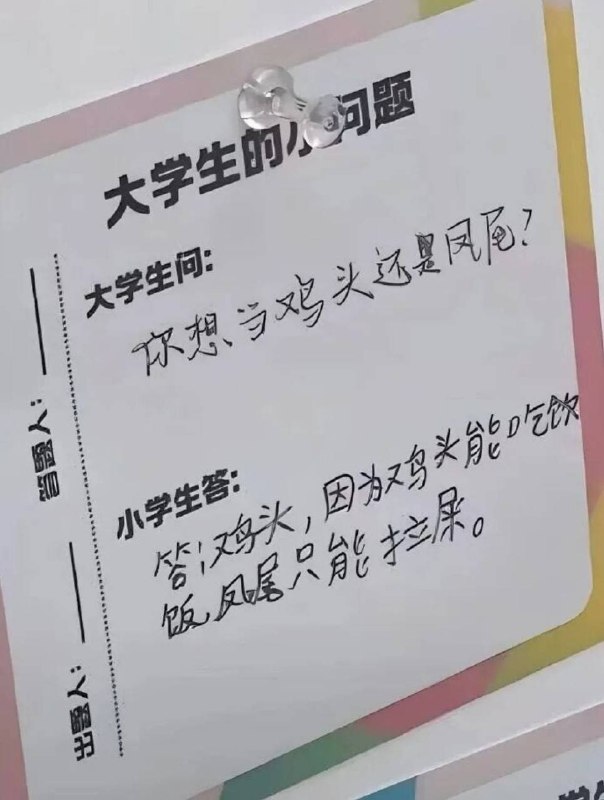 大学生的小问题
大学生问:
你想当鸡头还是凤尾?
小学生答:
答:鸡头,因为鸡头能吃
饭,凤尾只能拉屎。
答题人:
出题人: